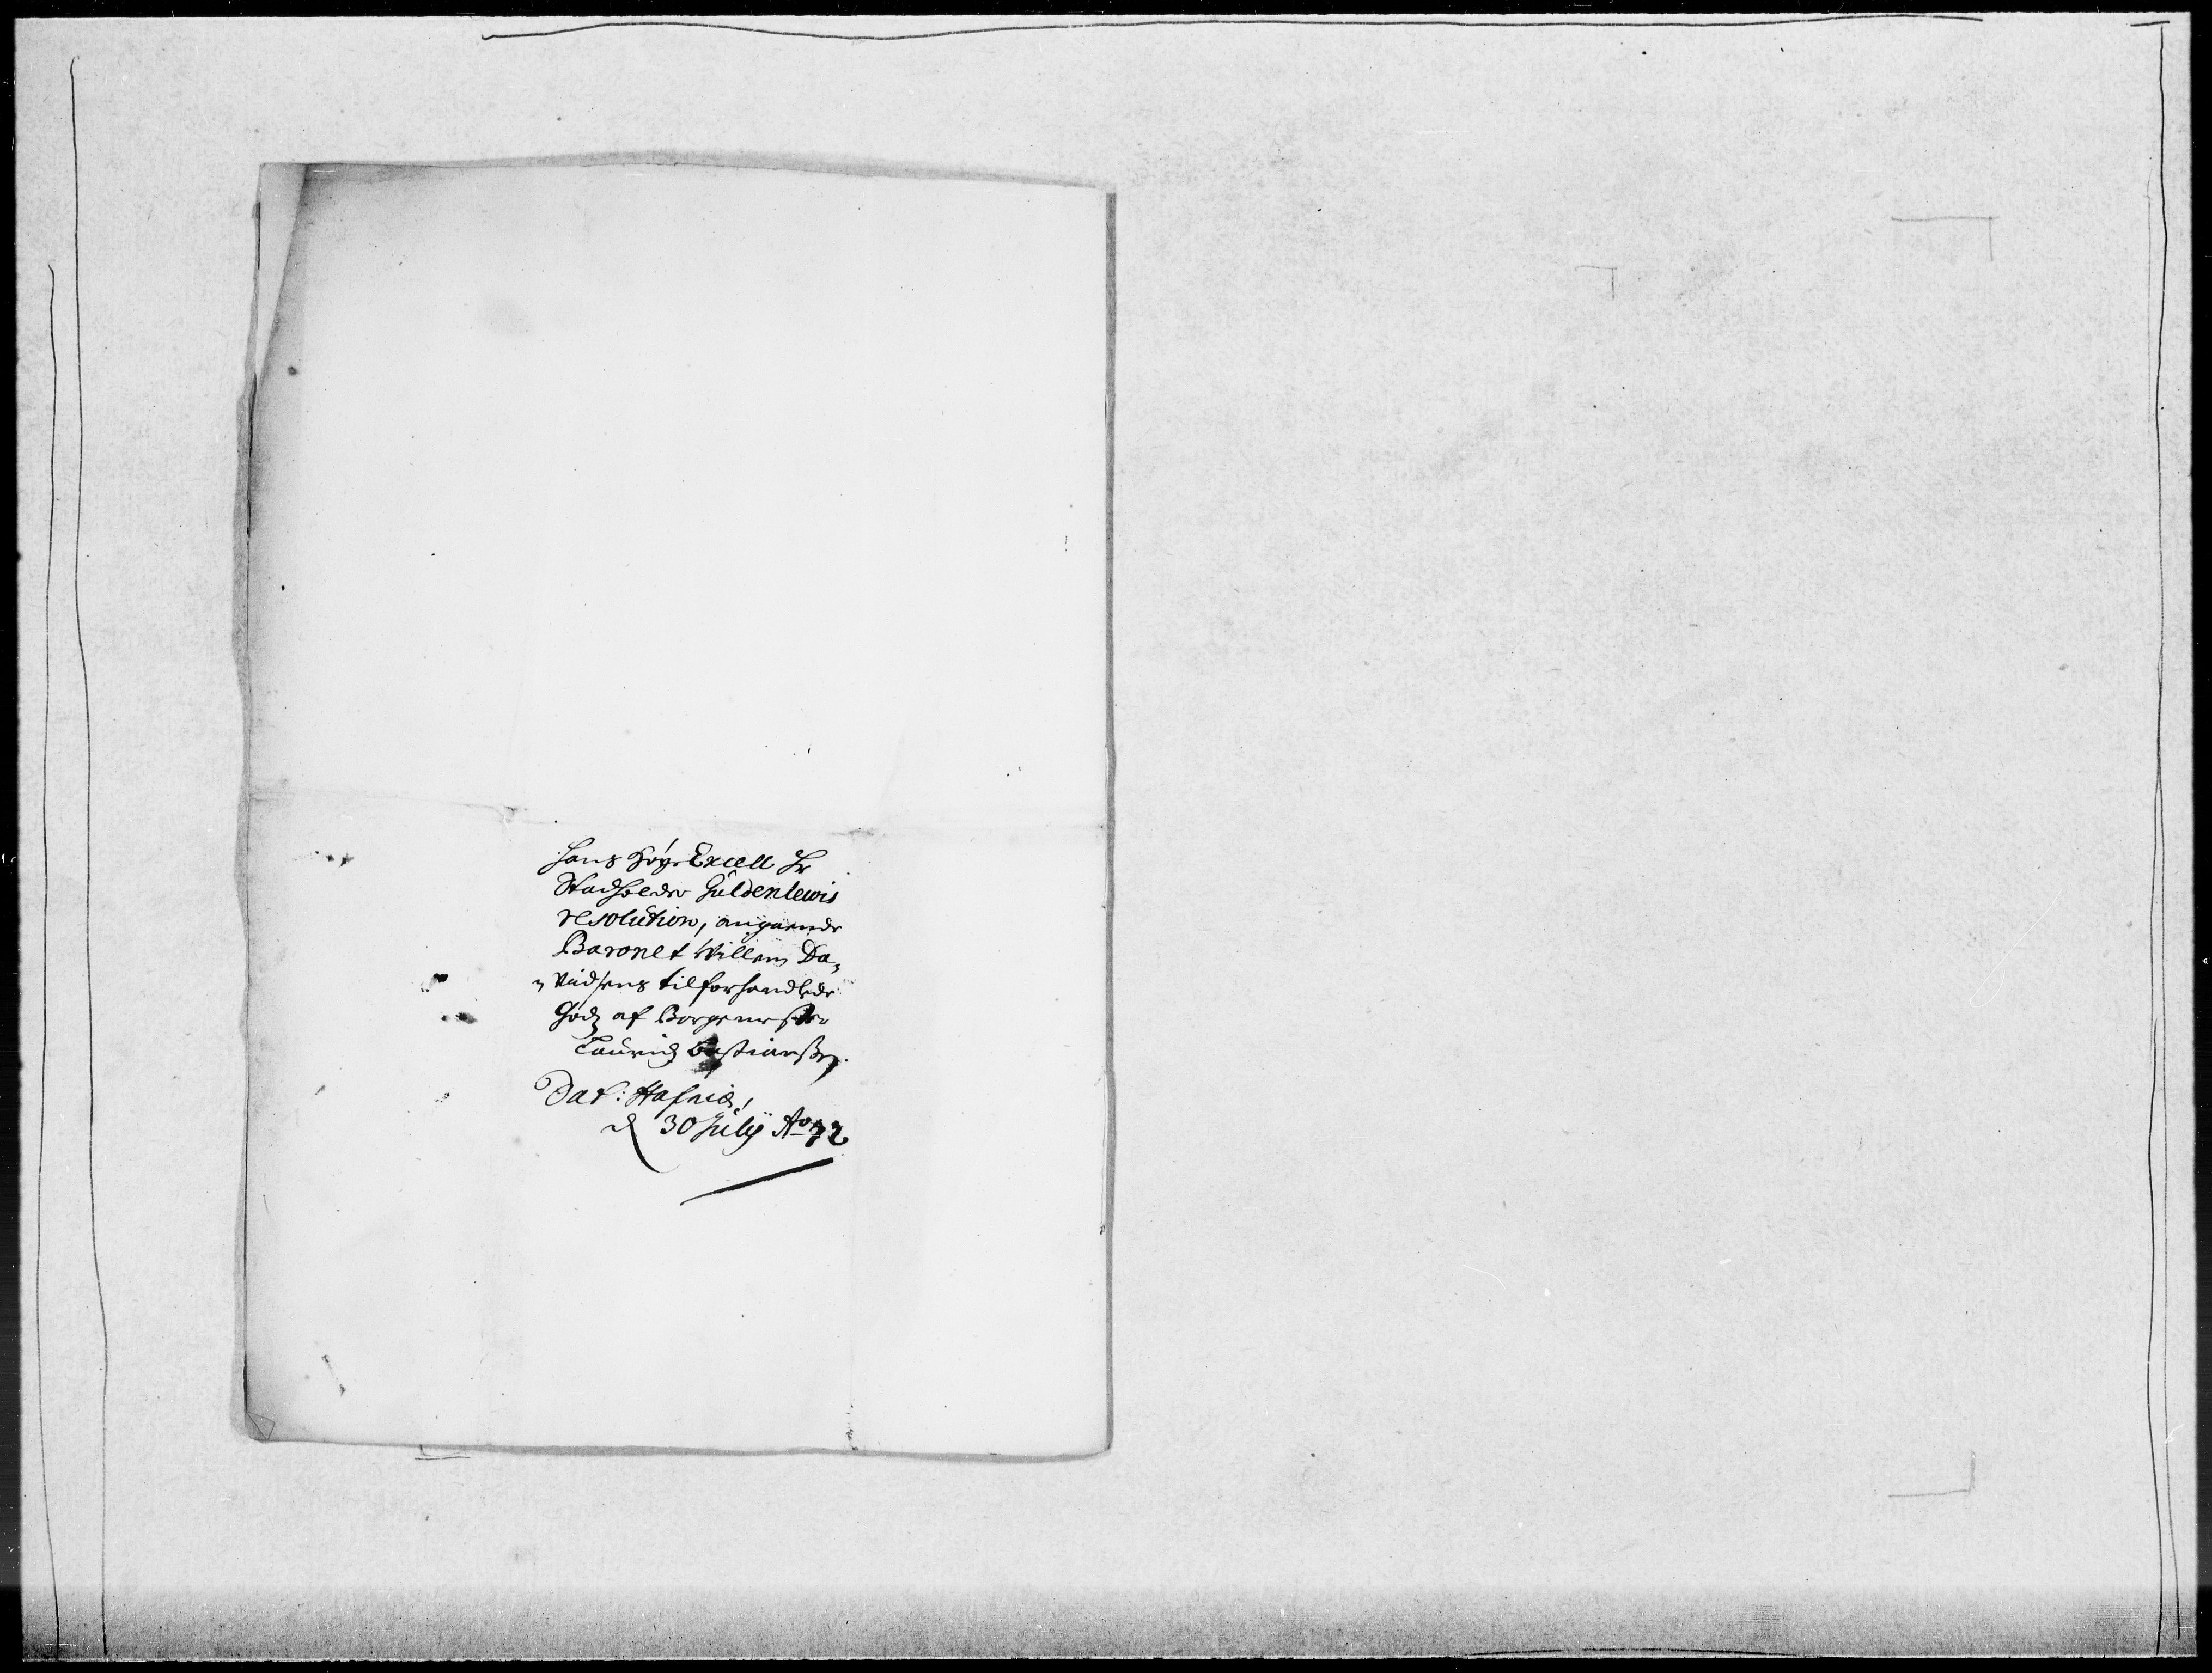 Hans Høye Excell Hr
Stadholder Güldenlewis
resolution, angaaende
Baronet Willem Da„
„vidsens tilforhandlede
Godz af Borgemester
Lauridz Bastiansen.
Dat: Hafniæ,
d 30 Julij Ao 72